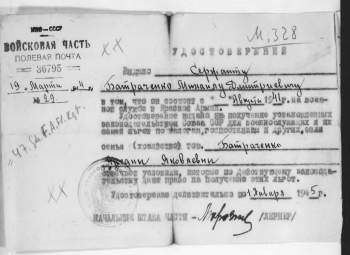 НКО–СССР
ВОЙСКОВАЯ ЧАСТЬ
ПОЛЕВАЯ ПОЧТА
36795
19 Марта
№ 29
М, 328
УДОСТОВЕРЕНИЕ
Выдано Сержанту
Батраченко Михаилу Дмитриевичу
в том, что он состоит с Августа 1941г. на воен-
ной службе в Красной Армии.
Удостоверение выдано на получение установленных
законодательством Союза ССР для военнослужащих и их
семей льгот по налогам, госпоставкам и других, если
семья (хозяйство) тов. Батраченко
Яковлевны
отвечает условиям, которые по действующему законода-
тельству дают право на получение этих льгот.
Удостоверение действительно до 1 Января 1945 г.
НАЧАЛЬНИК ШТАБА ЧАСТИ – /ЛЕРНЕР/